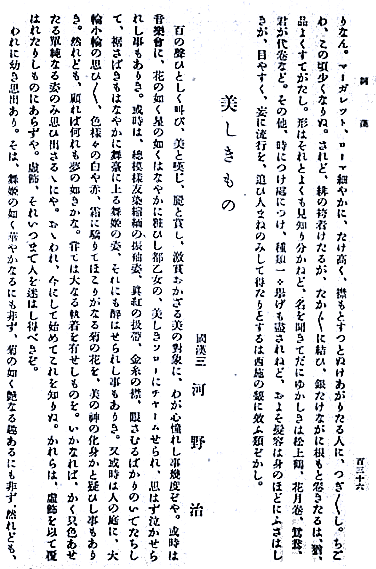 詞藻
百三十六
りなん。マーガレット、ローマ細やかに、たけ高く、襟もとすつとぬけあがりたる人に、つきづきし。ちご
わ、この頃少くなりぬ。されど、緋の袴着けたるが、たか〴〵に結び、銀たけながに根もと卷きたるは、猶、
品よくすてがたし。形はそれとよくも見知り分かねど、名を聞きてだにゆかしきは松上鶴、花月卷、鴛鴦、
君が代卷など。その他、時につけ處につけ、種類一々擧げも盡されねど、およそ髪容は身のほどにふさはし
きが、目やすく、妄に流行を、追ひ人まねのみして得たりとするは西施の顰に效ふ類ぞかし。
美しきもの
國漢三 河野 治
百の聲ひとしく叫び、美と嘆じ、麗と賞し、激賞おかざる美の對象に、わが心憧れし事幾度ぞや。或時は
音樂會に、花の如く星の如くはなやかに粧ひし都乙女の、美しきソローにチャームせられ、思はず泣かせら
れし事もありき。或時は、總模樣友染縮緬の振袖姿、眞紅の扱帶、金糸の襟、眼さむるばかりのいでたちし
て、裾さばきもはなやかに舞臺に上る舞姫の姿、それにも醉はせられし事もありき。又或時は人の庭に、大
輪小輪の思ひ〳〵、色樣々の白や赤、霜に驕りてほこりがなる菊の花を、美の神の化身かと疑ひし事もあり
き。然れども、顧れば何れも夢の如きかな。嘗ては大なる執着を有せしものを。いかなれば、かく只色あせ
たる單純なる姿のみ思ひ出さるゝにや。おゝわれ、今にして始めてこれを知りぬ。かれらは、虚飾を以て覆
はれたりしものにあらずや。虚飾、それいつまで人を迷はし得べきぞ。
われに幼き思出あり。そは、舞姫の如く華やかなるにも非ず、菊の如く艶なる趣あるにも非ず、然れども、